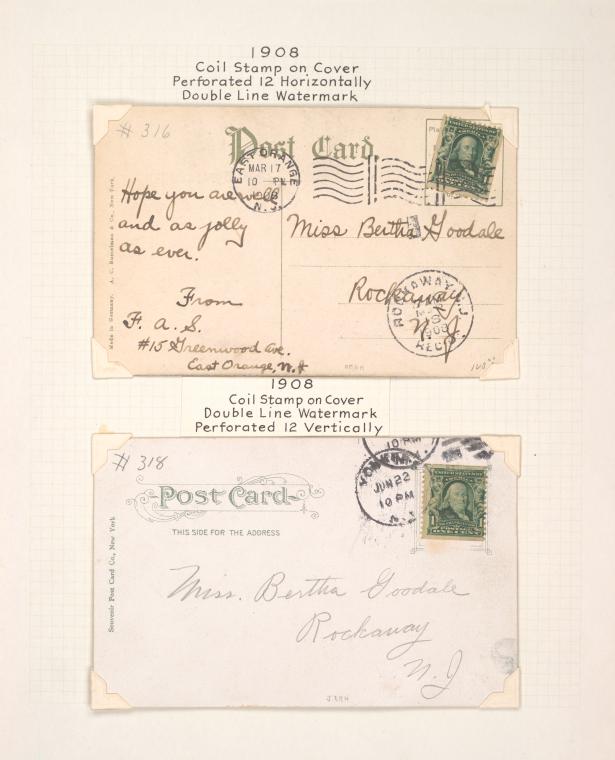 1908
Coil Stamp on Cover
Perforated 12 Horizontally
Double Line Watermark
# 316
Post Card
EAST ORANGE
MAR 17
10 PM
N. J.
Hope you are well
and as jolly
as ever.
From
F. A. S.
#15 Greenwood Ave.
East Orange, N.J
Miss Bertha Goodale
Rockaway
N. J.
ROCKAWAY N.J.
1908
REC'D.
Made in Germany.
1908
Coil Stamp on Cover
Double Line Watermark
Perforated 12 Vertically
# 318
Post Card
THIS SIDE FOR THE ADDRESS
Souvenir Post Card Co., New York
10 PM
JUN 22
10 PM
N. J.
1
ONE CENT
Miss. Bertha Goodale
Rockaway
N. J